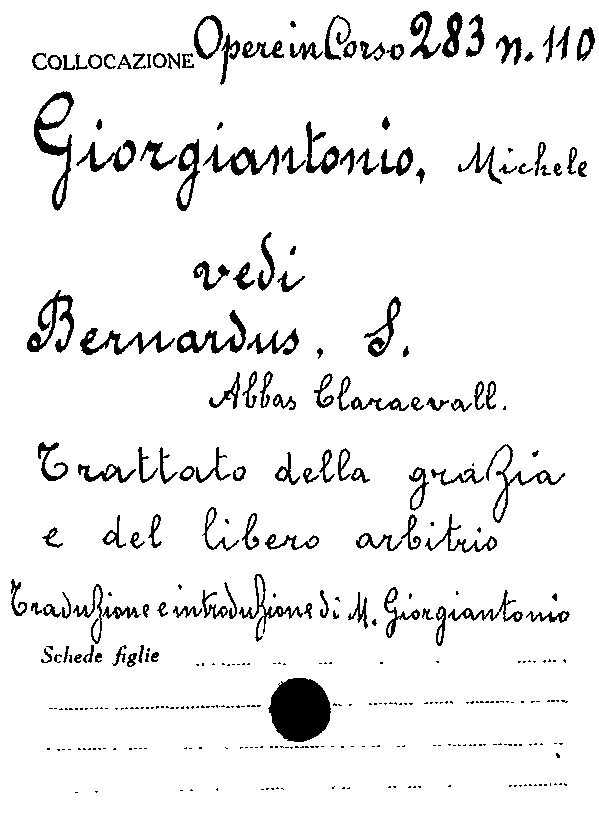 COLLOCAZIONE Opere in Corso 283 n. 110
Giorgiantonio, Michele
vedi
Bernardus, S.
Abbas Claraevall.
Trattato della grazia
e del libero arbitrio
Traduzione e introduzione di M. Giorgiantonio
Schede figlie